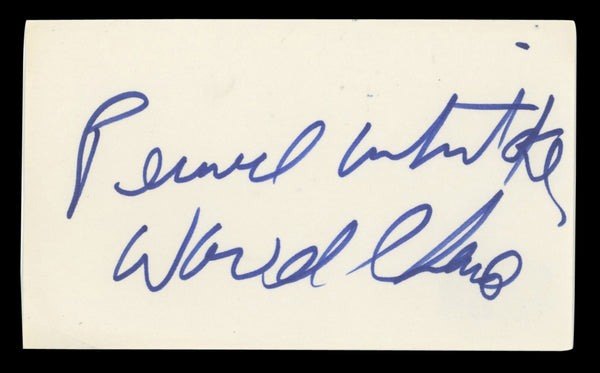 Pernell Whitaker
World Champ